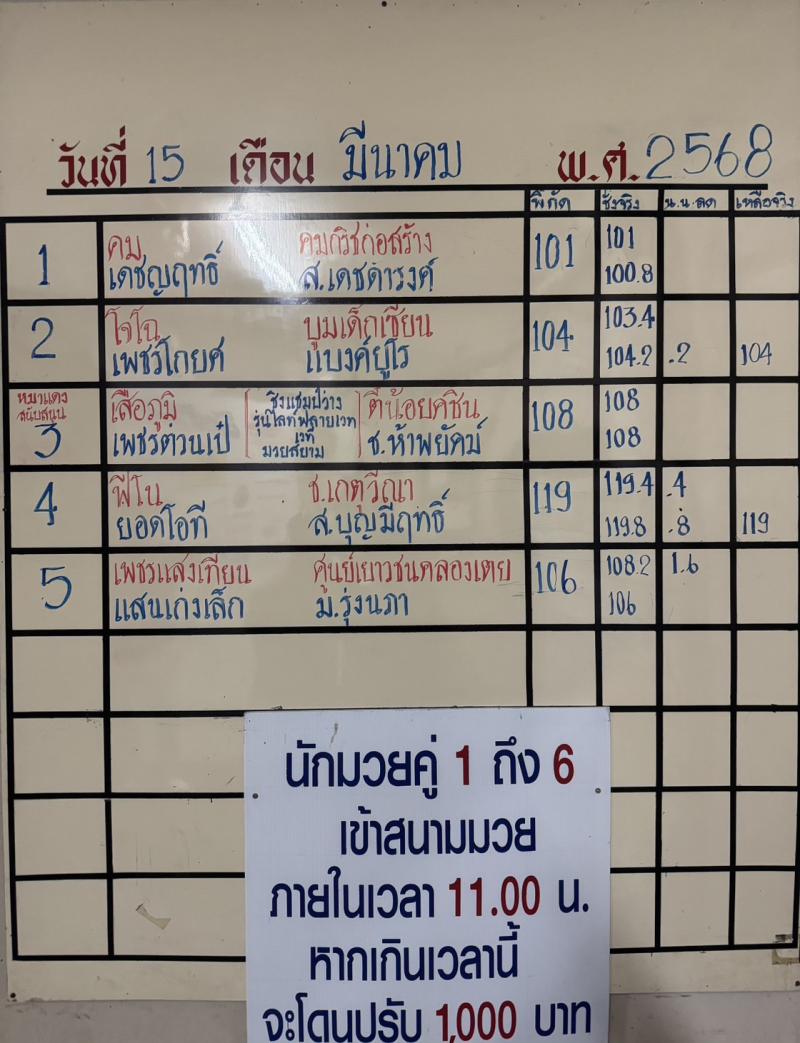 วันที่ 15 เดือน มีนาคม พ.ศ. 2568
พิกัด ชั่งจริง น.น.ลด เหลือจริง
1 คม คมกริชก่อสร้าง 101 101
เดชญฤทธิ์ ส.เดชดำรงค์ 100.8
2 โจโฉ บูมเด็กเซียน 104 103.4
เพชรโกยศ แบงค์ยูโร 104.2 .2 104
หมาแดง สนับสนุน
3 เสือภูมิ ชิงแชมป์ว่าง ตี๋น้อยคชิน 108 108
รุ่นไลท์ฟลายเวท
เพชรด่วนเป๋ เวที ช.ห้าพยัคฆ์ 108
มวยสยาม
4 ฟีโน่ ช.เกตุวีณา 119 119.4 .4
ยอดโอที ส.บุญมีฤทธิ์ 119.8 .8 119
5 เพชรแสงเทียน ศูนย์เยาวชนคลองเตย 106 108.2 1.6
แสนเก่งเล็ก ม.รุ่งนภา 106
นักมวยคู่ 1 ถึง 6
เข้าสนามมวย
ภายในเวลา 11.00 น.
หากเกินเวลานี้
จะโดนปรับ 1,000 บาท